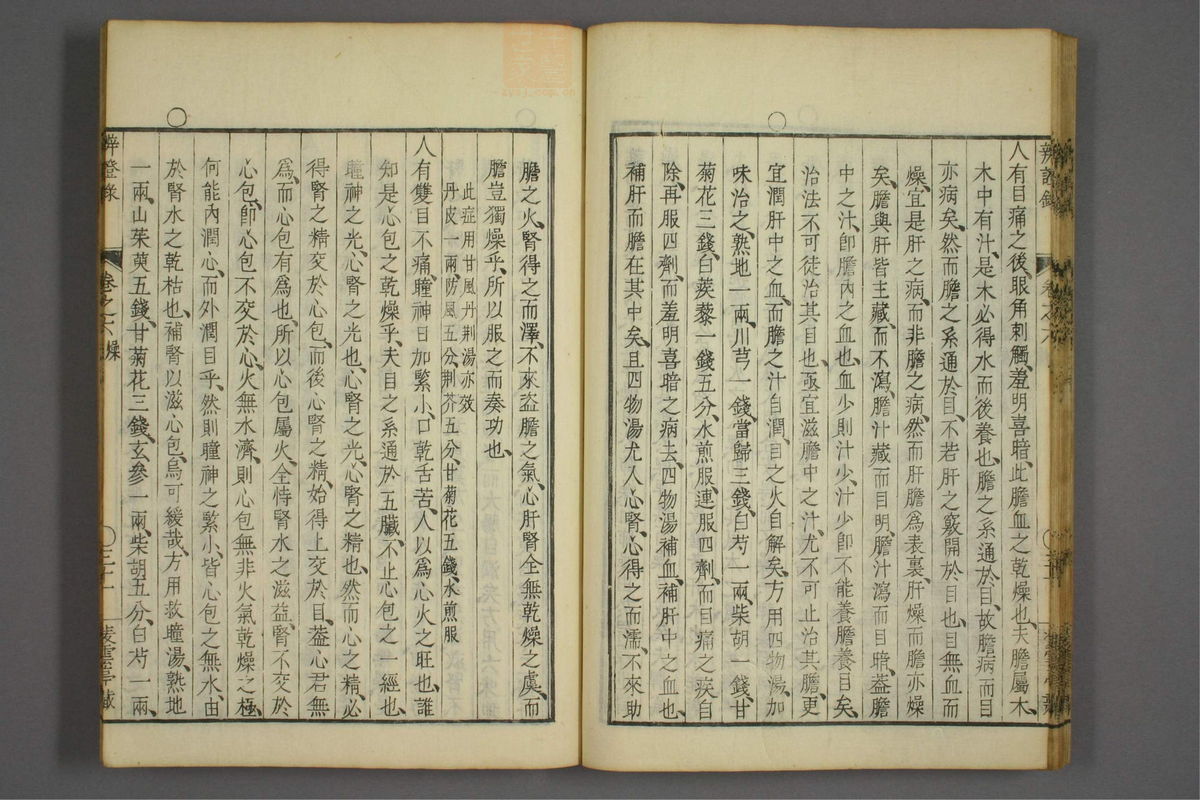 人有目痛之後、眼角刺觸、羞明喜暗、此膽血之乾燥也、夫膽屬木、
木中有汁、是木必得水而後養也、膽之系通於目、故膽病而目
亦病矣、然而膽之系通於目、不若肝之竅開於目也、目無血而
燥、宜是肝之病、而非膽之病、然而肝膽為表裏、肝燥而膽亦燥
矣、膽與肝皆主藏而不瀉、膽汁藏而目明、膽汁瀉而目暗、蓋膽
中之汁、卽膽內之血也、血少則汁少、汁少卽不能養膽養目矣、
治法不可徒治其目也、亟宜滋膽中之汁、尤不可止治其膽、更
宜潤肝中之血、而膽之汁自潤、目之火自解矣、方用四物湯、加
味治之、熟地一兩、川芎一錢、當歸三錢、白芍一兩、柴胡一錢、甘
菊花三錢、白蒺藜一錢五分、水煎服、連服四劑、而目痛之疾自
除、再服四劑、而羞明喜暗之病去、四物湯補血、補肝中之血也、
補肝而膽在其中矣、且四物湯尤入心腎、心得之而濡、不來助
膽之火、腎得之而澤、不來盜膽之氣、心肝腎全無乾燥之虞、而
膽豈獨燥乎、所以服之而奏功也、
此症用甘風丹荆湯亦效
丹皮一兩、防風五分、荆芥五分、甘菊花五錢、水煎服
人有雙目不痛、瞳神日加緊小、口乾舌苦、人以為心火之旺也、誰
知是心包之乾燥乎、夫目之系通於五臟、不止心包之一經也、
瞳神之光、心腎之光也、心腎之光、心腎之精也、然而心之精、必
得腎之精交於心包、而後心腎之精、始得上交於目、蓋心君無
為、而心包有為也、所以心包屬火、全恃腎水之滋益、腎不交於
心包、卽心包不交於心、火無水濟、則心包無非火氣、乾燥之極、
何能內潤心、而外潤目乎、然則瞳神之緊小、皆心包之無水、由
於腎水之乾枯也、補腎以滋心包、烏可緩哉、方用救瞳湯、熟地
一兩、山茱萸五錢、甘菊花三錢、玄參一兩、柴胡五分、白芍一兩、
辨證錄
卷之六 燥
凌雲亭藏